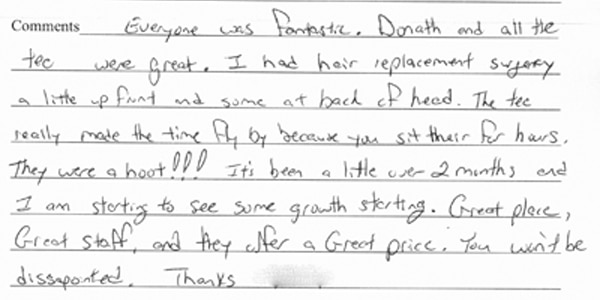 Comments Everyone was fantastic. Donath and all the
tec were great. I had hair replacement sugery
a little up front and some at back of head. The tec
really made the time fly by because you sit their for hours.
They were a hoot!!! It's been a little over 2 months and
I am starting to see some growth starting. Great place,
Great staff, and they offer a Great price. You won't be
dissapointed. Thanks